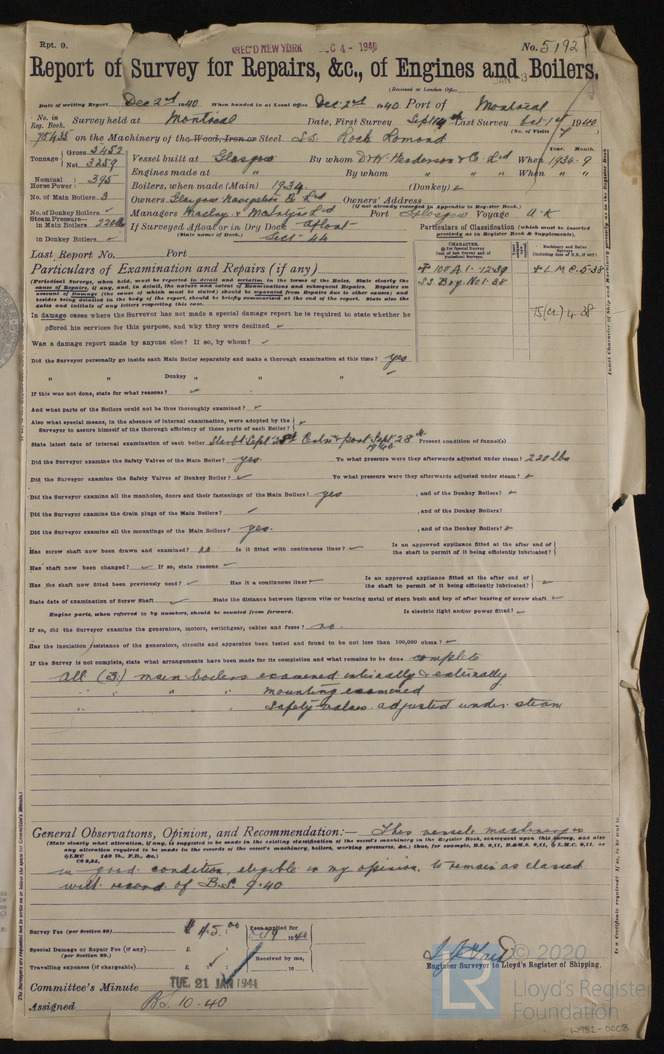 Rpt. 9.
REC'D NEW YORK DEC 4 - 1940
No. 5192
Report of Survey for Repairs, &c., of Engines and Boilers.
JAN 3
(Received at London Office
Date of writing Report Dec 2nd 1940 When handed in at Local Office Dec 2nd 1940 Port of Montreal
No. in Reg. Book. Survey held at Montreal Date, First Survey Sept 14th Last Survey Oct 1st 1940
(No. of Visits 7)
78435 on the Machinery of the Wood, Iron or Steel S.S. Rock Lomond
Tonnage { Gross 5452 Net 3259
Vessel built at Glasgow By whom D. & W. Henderson & Co Ltd When 1934 - 9
Year. Month.
Nominal Horse Power: 395
Engines made at " By whom " When " "
Boilers, when made (Main) 1934 (Donkey) ✓
No. of Main Boilers 3
Owners Glasgow Navigation Co Ltd Owners' Address
(if not already recorded in Appendix to Reg. Book.)
No. of Donkey Boilers ✓
Managers Maclay & McIntyre Ltd Port Glasgow Voyage U.K
Steam Pressure— in Main Boilers 220 lbs
in Donkey Boilers ✓
If Surveyed Afloat or in Dry Dock Afloat
(State name of Dock.) Sect. 44
Particulars of Classification (which must be inserted precisely as in Register Book & Supplements).
Last Report No. Port
CHARACTER.
Machinery and Boiler Surveys (including date of N.B., if any)
+ 100 A1 - 12.39
+ L.M.C. 5-38
S.S. Boy. No 1 - 38
TS (CL) 4.38
Particulars of Examination and Repairs (if any)
(Periodical Surveys, when held, must be reported in detail and seriatim in the terms of the Rules. State clearly the cause of Repairs, if any, and, in detail, the nature and extent of Examinations and subsequent Repairs. Repairs on account of Damage (the cause of which must be stated) should be separated from Repairs due to other causes; and besides being detailed in the body of the report, should be briefly summarised at the end of the report. State also the dates and initials of any letters respecting this case.
In damage cases where the Surveyor has not made a special damage report he is required to state whether he
offered his services for this purpose, and why they were declined ✓
Was a damage report made by anyone else? If so, by whom? ✓
Did the Surveyor personally go inside each Main Boiler separately and make a thorough examination at this time? yes
" " Donkey " " " ✓
If this was not done, state for what reasons? ✓
And what parts of the Boilers could not be thus thoroughly examined? ✓
Also what special means, in the absence of internal examination, were adopted by the Surveyor to assure himself of the thorough efficiency of those parts of each Boiler? ✓
State latest date of internal examination of each boiler Starbd Sept 28th Centre & port Sept 28th 1940 Present condition of funnel(s)
Did the Surveyor examine the Safety Valves of the Main Boiler? yes To what pressure were they afterwards adjusted under steam? 220 lbs
Did the Surveyor examine the Safety Valves of Donkey Boiler? ✓ To what pressure were they afterwards adjusted under steam? ✓
Did the Surveyor examine all the manholes, doors and their fastenings of the Main Boilers? yes , and of the Donkey Boilers? ✓
Did the Surveyor examine the drain plugs of the Main Boilers? ✓ , and of the Donkey Boilers?
Did the Surveyor examine all the mountings of the Main Boilers? yes. , and of the Donkey Boilers? ✓
Has screw shaft now been drawn and examined? no Is it fitted with continuous liner? ✓ Is an approved appliance fitted at the after end of the shaft to permit of it being efficiently lubricated?
Has shaft now been changed? ✓ If so, state reasons ✓
Has the shaft now fitted been previously used? ✓ Has it a continuous liner? ✓ Is an approved appliance fitted at the after end of the shaft to permit of it being efficiently lubricated? ✓
State date of examination of Screw Shaft ✓ State the distance between lignum vitæ or bearing metal of stern bush and top of after bearing of screw shaft ✓
Engine parts, when referred to by numbers, should be counted from forward. Is electric light and/or power fitted? ✓
If so, did the Surveyor examine the generators, motors, switchgear, cables and fuses? no.
Has the insulation resistance of the generators, circuits and apparatus been tested and found to be not less than 100,000 ohms? ✓
If the Survey is not complete, state what arrangements have been made for its completion and what remains to be done complete
All (3) main boilers examined internally & externally
" " " mounting examined
" " " Safety valves adjusted under steam
General Observations, Opinion, and Recommendation:— This vessels machinery is
(State clearly what alteration, if any, is suggested to be made in the existing classification of the vessel's machinery in the Register Book, consequent upon this survey, and also any alteration required to be made in the records of the vessel's machinery, boilers, working pressures, &c.; thus, for example, B.S. 9,11, B.&M.S. 9,11, L.M.C. 9,11, or LMC 140 lb., F.D., &c.)
in good condition, eligible in my opinion, to remain as classed
with record of B.S. 9.40
Survey Fee (per Section 29) $ 45.00 Fees applied for 1940
Special Damage or Repair Fee (if any) (per Section 29.) £ : : Received by me,
Travelling expenses (if chargeable) £ : : 19
Engineer Surveyor to Lloyd's Register of Shipping.
Committee's Minute TUE. 21 JAN 1941
Assigned BS 10-40
© 2020
LR
Lloyd's Register
Foundation
W982-0008